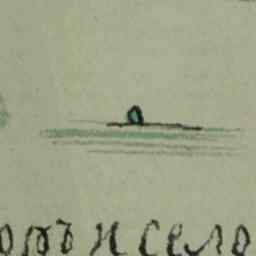 оръ и село